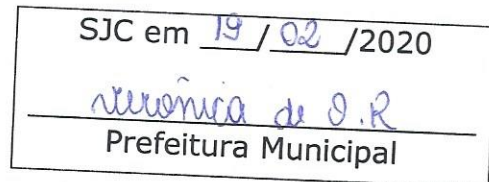 SJC em 19/02/2020
Verônica de O.R
Prefeitura Municipal